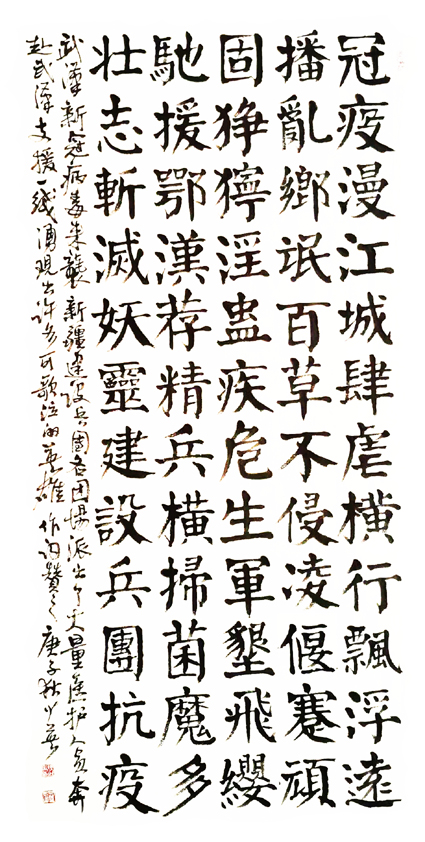 冠疫漫江城肆虐橫行飄浮遠
播亂鄉氓百草不侵凌偃蹇頑
固狰獰淫蛊疾危生軍墾飛纓
馳援鄂漢荐精兵橫掃菌魔多
壯志斬滅妖靈建設兵團抗疫
武漢新冠病毒来襲新疆建设兵團各团場派出了大量医护人员奔
赴武漢支援一线涌现出许多可歌泣的英雄作词赞之庚子秋